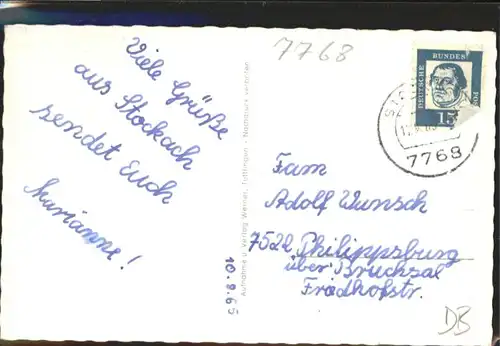 Viele Grüße
aus Stockach
sendet Euch
Marianne!
Aufnahme u. Verlag Werner, Tuttlingen - Nachdruck verboten
7768
DEUTSCHE BUNDES
15
7768
Fam
Adolf Wunsch
7522 Philippsburg
über Bruchsal
Friedhofstr.
10.9.65
DB